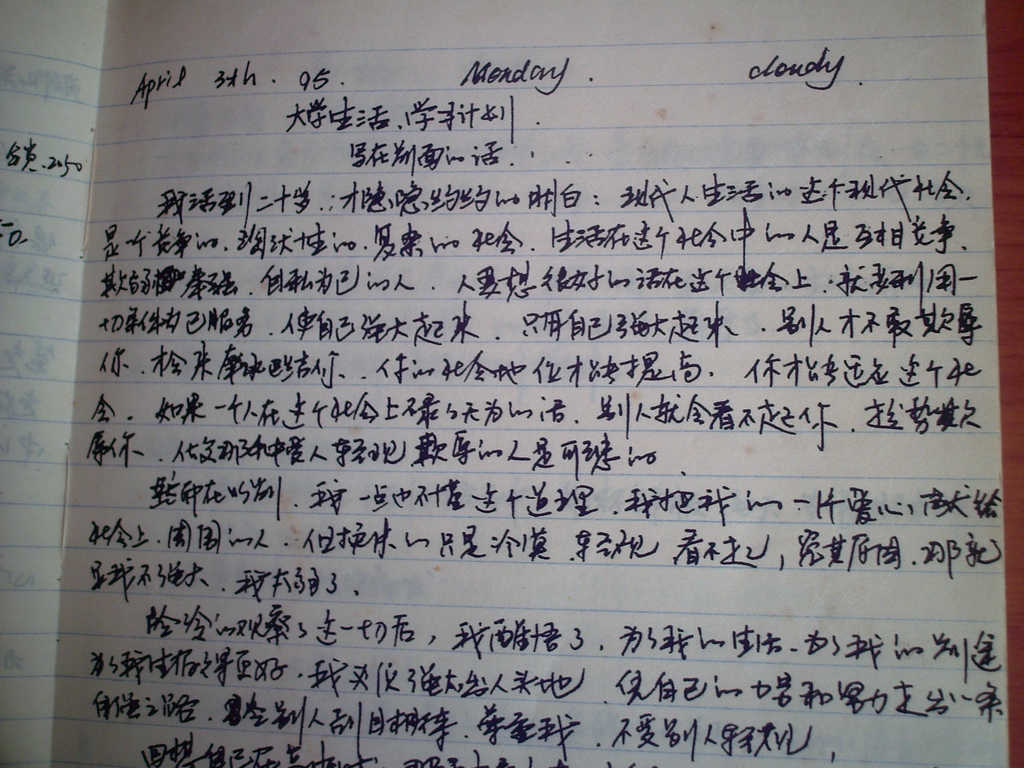 April 3th. 95. Monday. cloudy.
大学生活、学习计划.
写在前面的话....
合资.2050
我活到二十岁.才隐隐约约的明白:现代人生活的这个现代社会.
是一个竞争的.现状性的.复杂的社会.生活在这个社会中的人是互相竞争.
欺弱 自私为己的人.人要想很好的活在这个社会上.就要利用一
切条件为己服务.使自己强大起来.只有自己强大起来、.别人才不敢欺辱
你.才会来巴结你、.你的社会地位才能提高.你才能适应这个社
会.如果一个人在这个社会上不最有为的话.别人就会看不起你.趁势欺
辱你.受人轻视欺辱的人是可悲的.
在以前.我一点也不懂这个道理.我把我的一片爱心,献给
社会上.周围的人.但换来的只是冷漠 轻视 看不起,究其原因.那就
是我不强大.我太弱了.
冷冷的观察了这一切后,我醒悟了.为了我的生活.为了我的前途
为了我生活得更好.我必使强大出人头地 凭自己的力量和努力走出一条
自强之路.令别人刮目相看.尊重我.不受别人轻视,
回想自己在